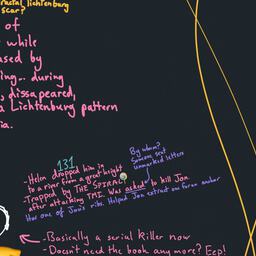 fractal lichtenburg
scar?
of
while
ased by
ing... during
, dissapeared,
a Lichtenburg pattern
ia.
131
- Helen dropped him in
to a river from a great height
- Trapped by THE SPIRAL?
after attacking TMI. Was asked to kill Jon
Has one of Jon's ribs. Helped Jon extract on for an anchor
By whom?
Someone sent
unmarked letters
- Basically a serial killer now
- Doesn't need the book any more? Eep!